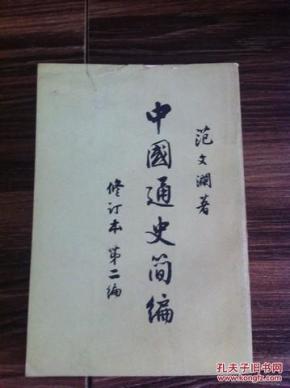 范文瀾著
中國通史简編
修订本 第二编
孔夫子旧书网